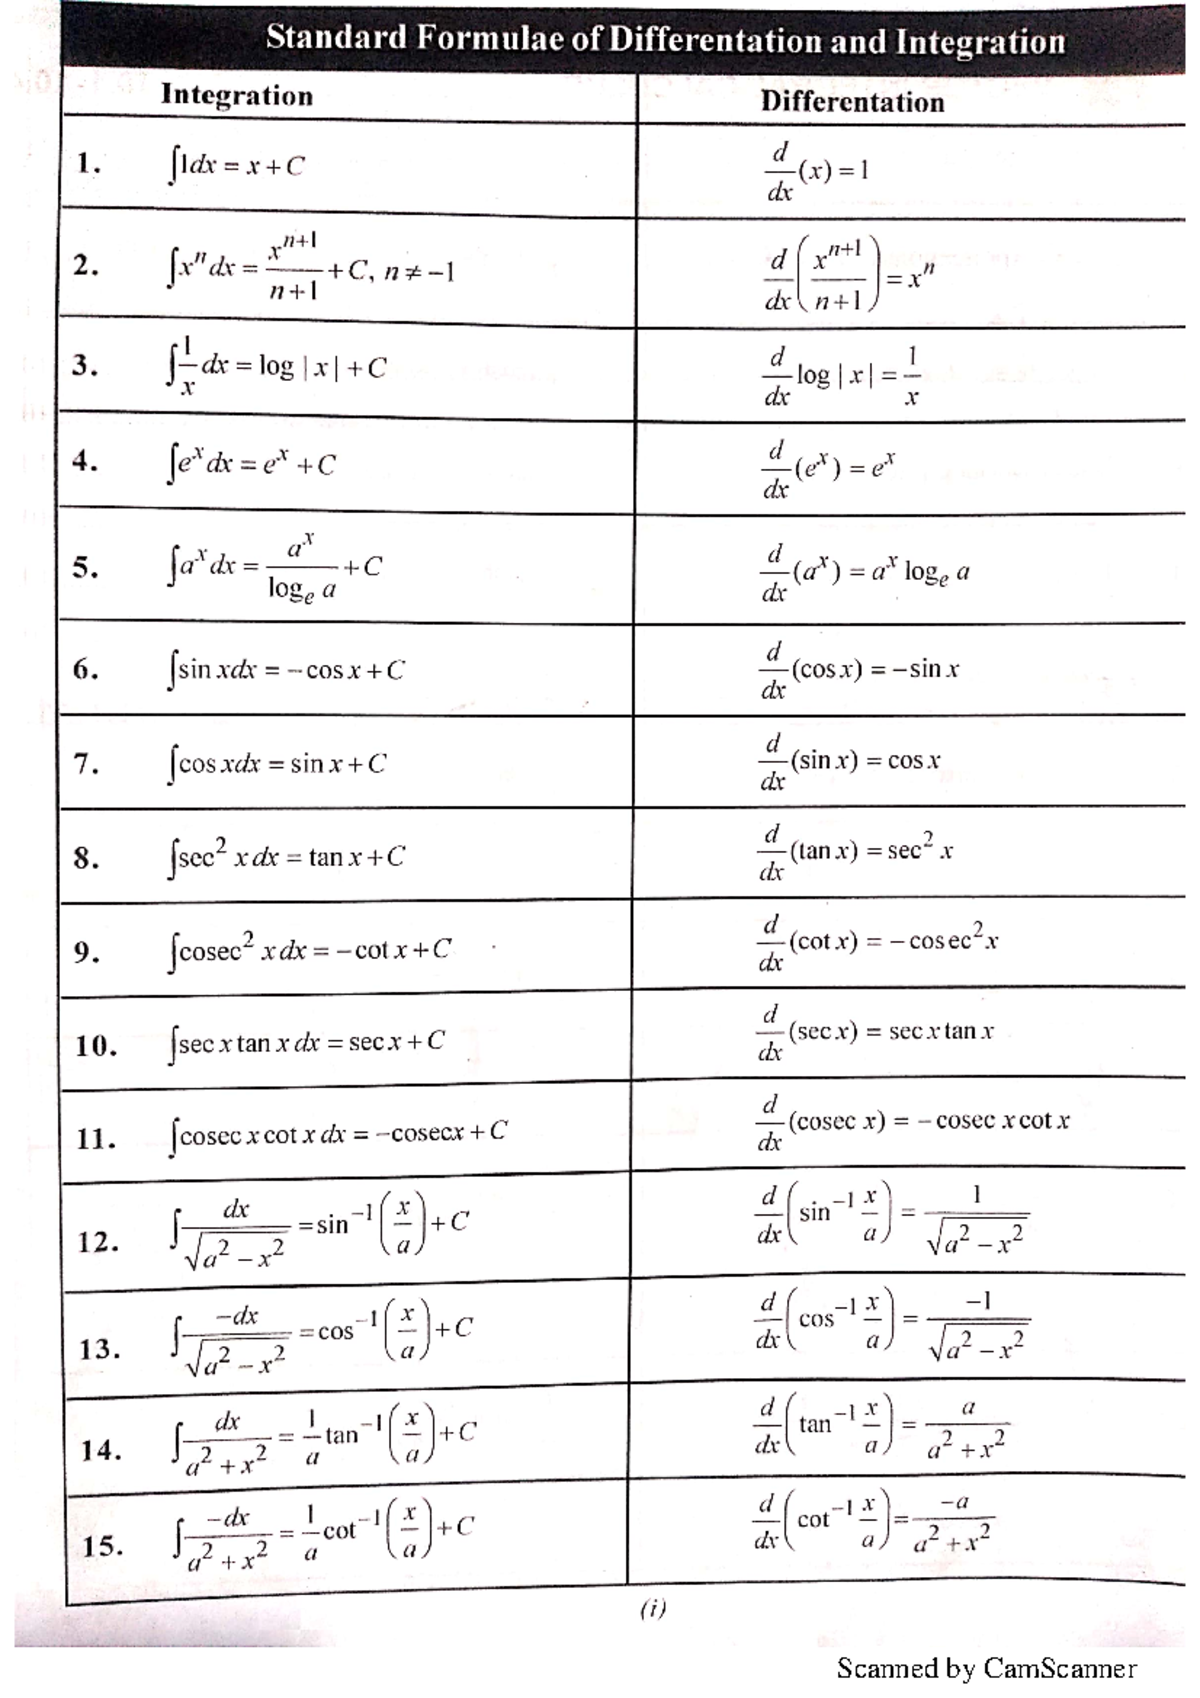 Standard Formulae of Differentation and Integration
Integration Differentation
1. ∫1dx = x + C d/dx (x) = 1
2. ∫xⁿ dx = xⁿ⁺¹/(n+1) + C, n ≠ −1 d/dx (xⁿ⁺¹/(n+1)) = xⁿ
3. ∫1/x dx = log | x | + C d/dx log | x | = 1/x
4. ∫eˣ dx = eˣ + C d/dx (eˣ) = eˣ
5. ∫aˣ dx = aˣ/logₑ a + C d/dx (aˣ) = aˣ logₑ a
6. ∫sin xdx = −cos x + C d/dx (cos x) = −sin x
7. ∫cos xdx = sin x + C d/dx (sin x) = cos x
8. ∫sec² x dx = tan x + C d/dx (tan x) = sec² x
9. ∫cosec² x dx = −cot x + C d/dx (cot x) = −cosec² x
10. ∫sec x tan x dx = sec x + C d/dx (sec x) = sec x tan x
11. ∫cosec x cot x dx = −cosecx + C d/dx (cosec x) = −cosec x cot x
12. ∫dx/√(a² − x²) = sin⁻¹(x/a) + C d/dx (sin⁻¹ x/a) = 1/√(a² − x²)
13. ∫−dx/√(a² − x²) = cos⁻¹(x/a) + C d/dx (cos⁻¹ x/a) = −1/√(a² − x²)
14. ∫dx/(a² + x²) = 1/a tan⁻¹(x/a) + C d/dx (tan⁻¹ x/a) = a/(a² + x²)
15. ∫−dx/(a² + x²) = 1/a cot⁻¹(x/a) + C d/dx (cot⁻¹ x/a) = −a/(a² + x²)
(i)
Scanned by CamScanner